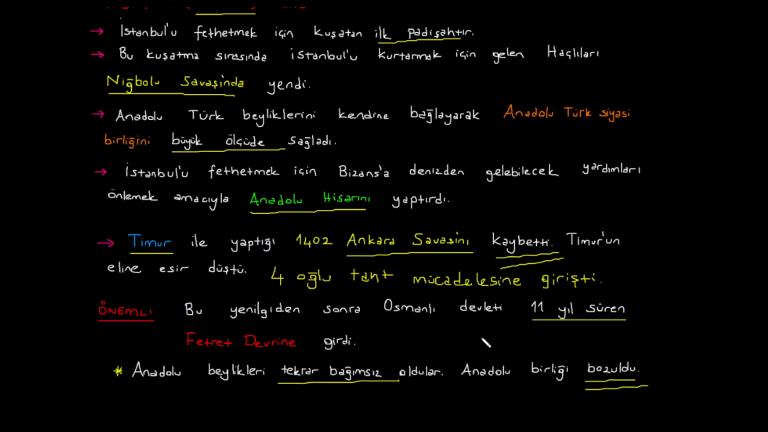 → İstanbul'u fethetmek için kuşatan ilk padişahtır.
→ Bu kuşatma sırasında İstanbul'u kurtarmak için gelen Haçlıları
Niğbolu Savaşında yendi.
→ Anadolu Türk beyliklerini kendine bağlayarak Anadolu Türk siyasi
birliğini büyük ölçüde sağladı.
→ İstanbul'u fethetmek için Bizans'a denizden gelebilecek yardımları
önlemek amacıyla Anadolu Hisarını yaptırdı.
→ Timur ile yaptığı 1402 Ankara Savaşını kaybetti. Timur'un
eline esir düştü. 4 oğlu taht mücadelesine girişti.
ÖNEMLİ Bu yenilgiden sonra Osmanlı devleti 11 yıl süren
Fetret Devrine girdi.
* Anadolu beylikleri tekrar bağımsız oldular. Anadolu birliği bozuldu.